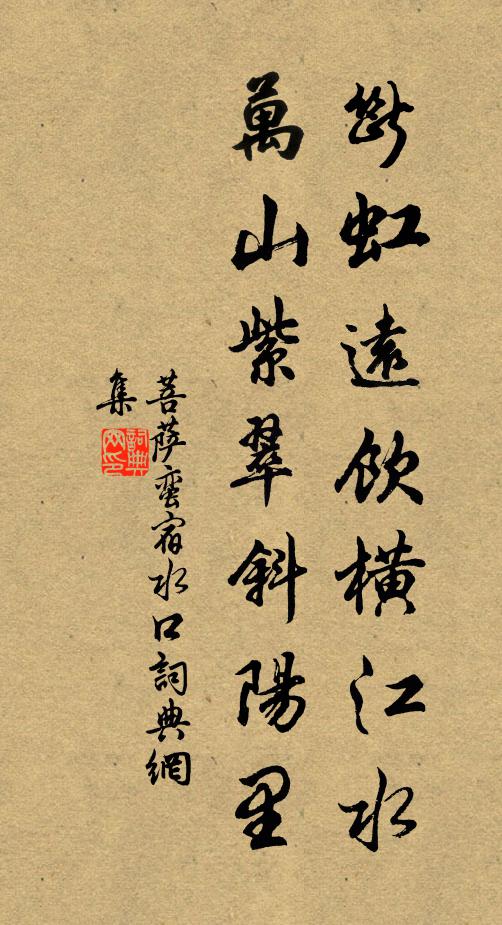 斷虹遠飲橫江水
萬山紫翠斜陽里
菩薩蠻宿水口詞典網
集
詞典
网印